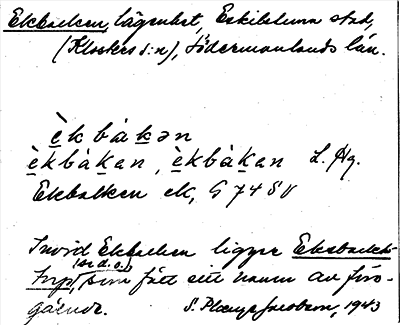 Ekbacken, lägenhet, Eskilstuna stad,
(Klosters s:n), Södermanlands län.
èkbàkən
èkbàkan, èkbàkan L. Hg.
Ekbakken ek, G 74 S V
Invid Ekbacken ligger Eksbacks-
torp, (se d. o.) som fått sitt namn av före-
gående. S. 1943